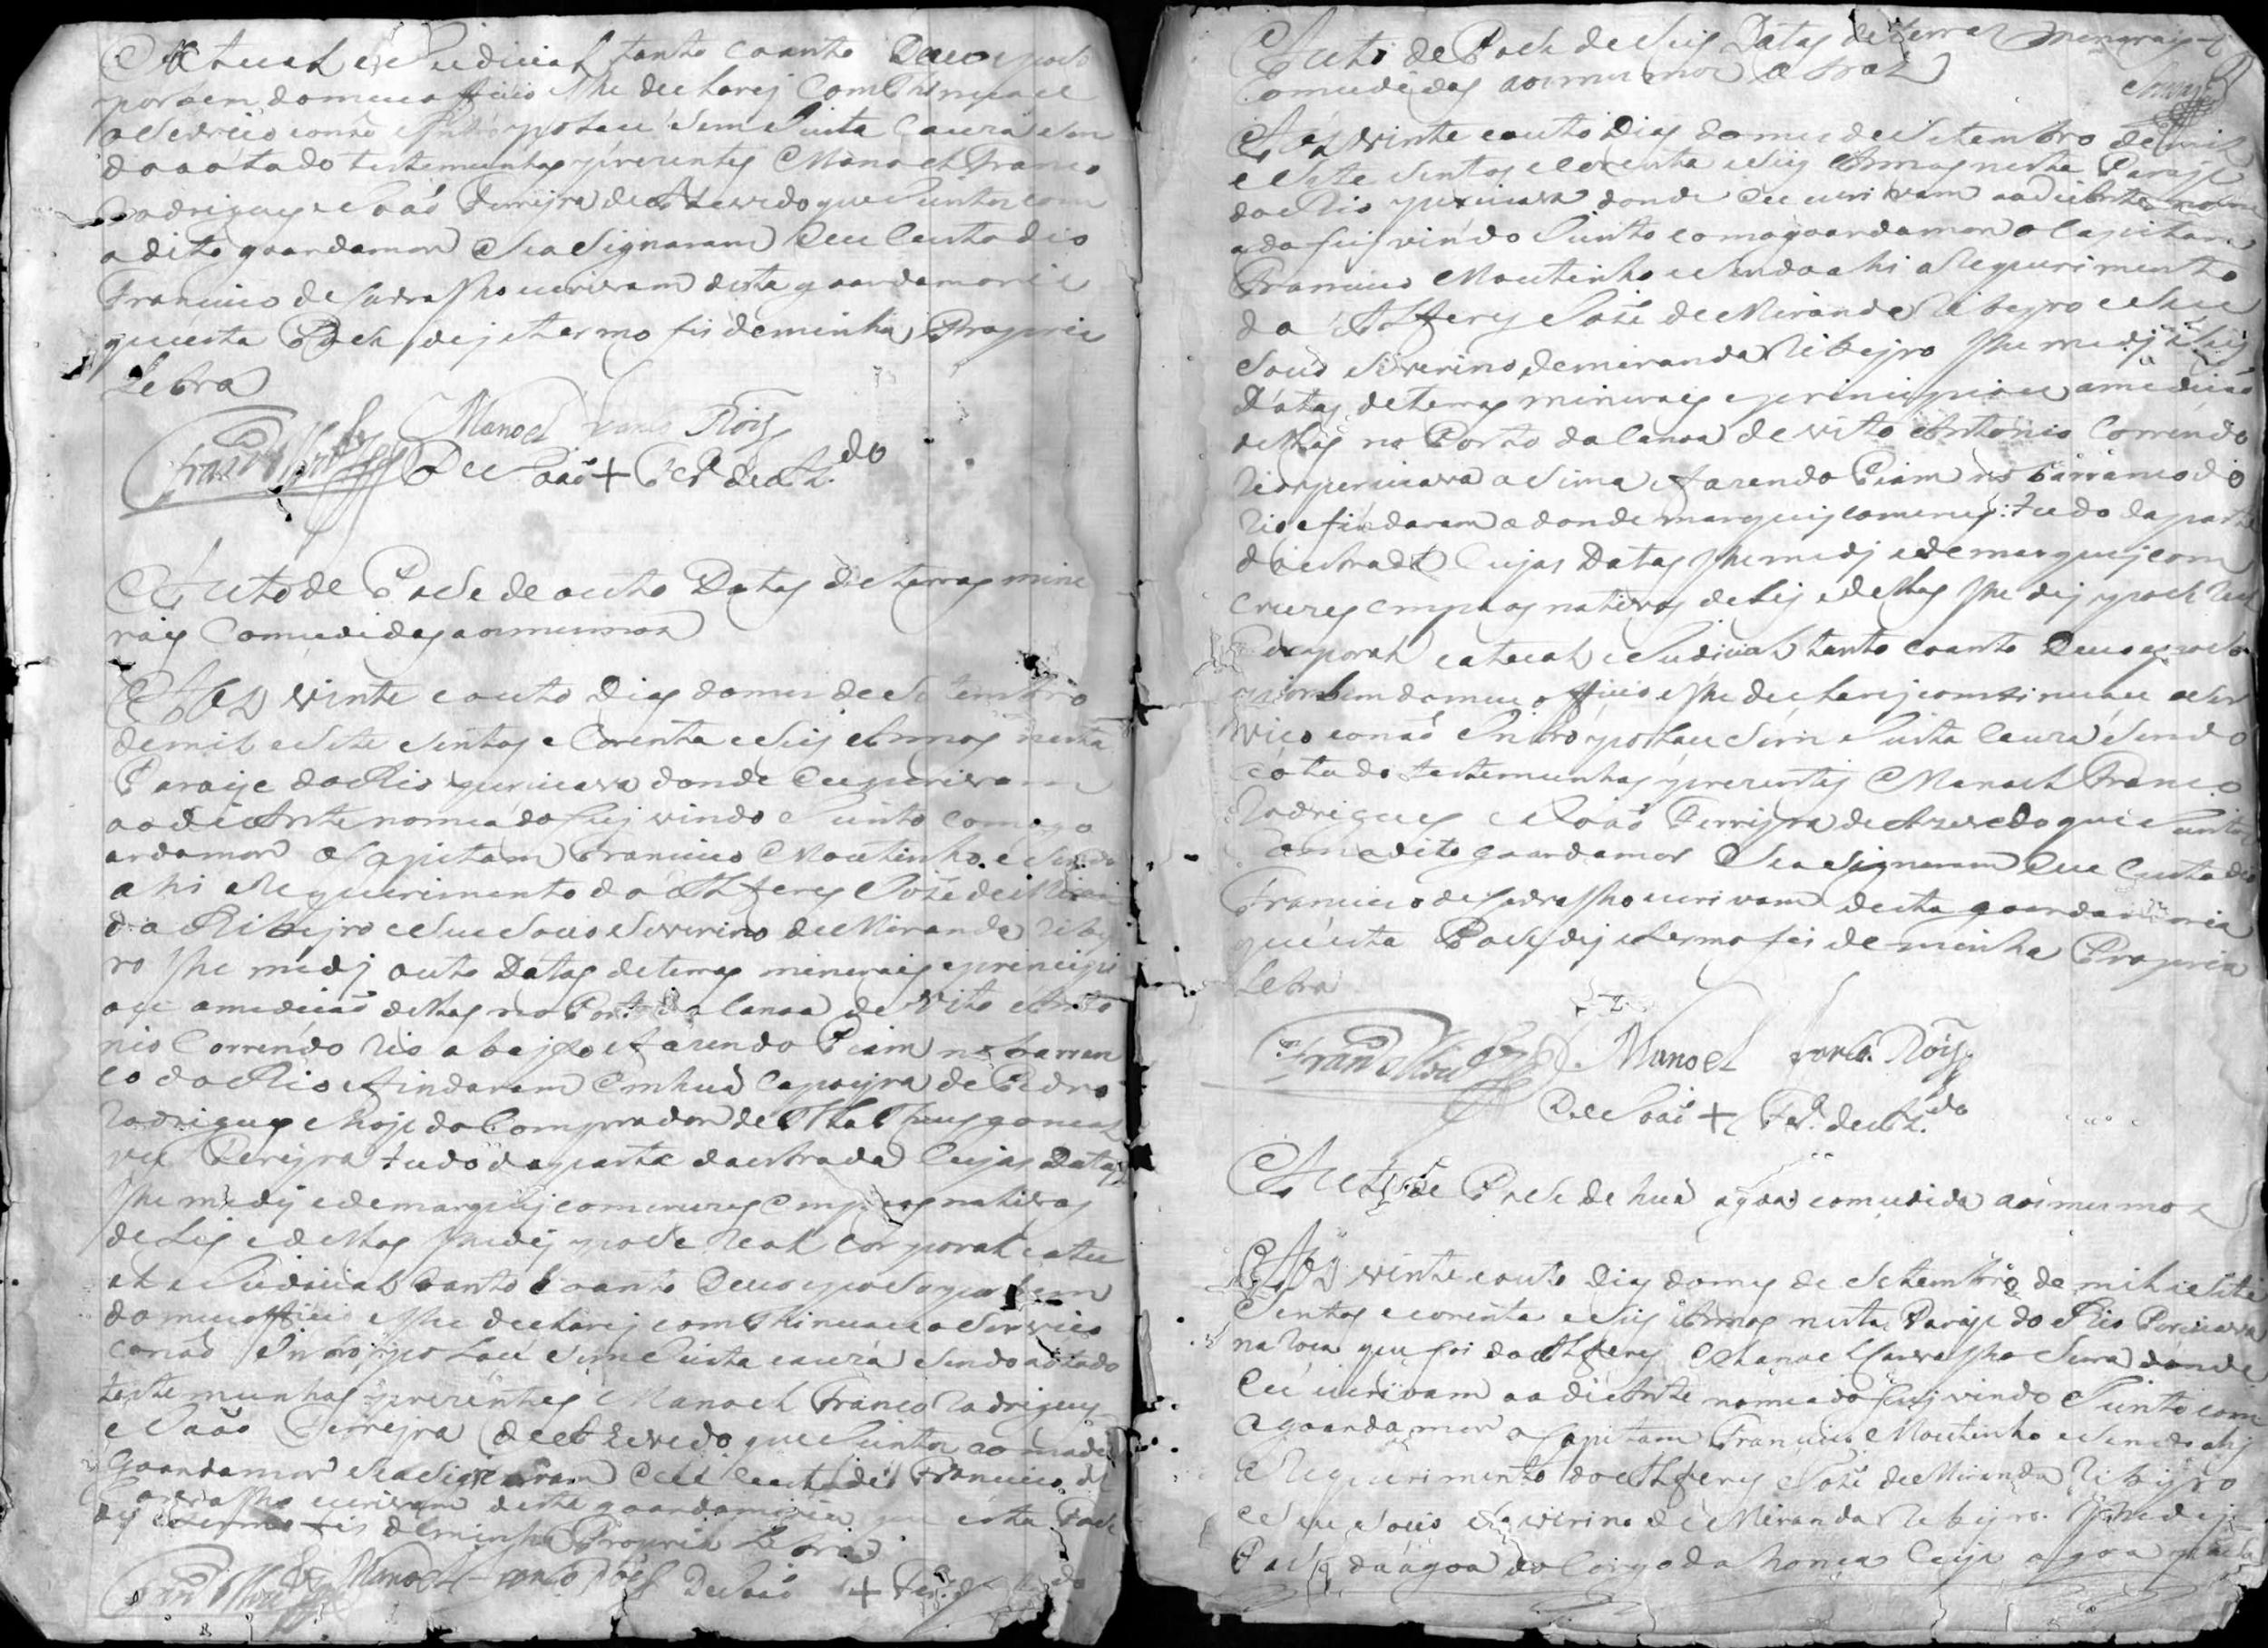 Actual e Judicial tanto coanto Devo e poso
por bem do meu officio e lhe declarej comthinuace
o Servico conáo Intrópolace sem Justa Cauza sen
do aotado testemunhas prezentes Manoel Franco
Rodrigues e Joáo Ferrejra de Azevedo que Juntos com
o dito goardamor Se asignaram Eu Custodio
Francisco de Carvalho escrivam desta goardamoria
que esta Pose dej e termo fis de minha Propria
Letra
Manoel Franco Roiz
De Joaõ + Ferª de Az.do
Auto de Pose de outo Datas de terras mine
rais Comedidas aos mesmos
Aos vinte e outo Dias do mes de Setembro
de mil e Sete Sentos e Corenta e Seis Annos nesta
Paraje do Rio perucava donde Eu escrivam
ao diante nomeádo fuj vindo e Junto com o go
ardamor o Capitam Francisco Moutinho e Sendo
ahi a Requerimento do Alferes Jozé de Miran
da Ribejro e Seu Socio Severino de Miranda Ribej
ro lhe medj outo Dátas de terras minerais e prencipi
ou a mediçaõ dellas no Porto da Canoa de Vito Anto
nio Correndo Rio abajxo fazendo Piam no barran
co do Rio e findaram Em huá Capoejra de Pedro
Rodrigues e hoje do Comprador de
Perejra tudo da parte da estrada Cujas Datas
lhe medj e demarquej com cruzes Em paos nativos
de Lej e dellas lhe dej pose Real Corporal e atu
al e Judicial tanto Coanto Devo e poso por bem
do meu officio e lhe declarej comthinuace o Servico
conáo Intrópolace sem Justa cauza sendo aotado
testemunhas prezentes Manoel Franco Rodrigues
e Joáo Ferrejra de Azevedo que Juntos com o dito
Goardamor Se asignaram Eu Custodio Francisco de
Carvalho escrivam desta goardamoria que esta Pose
dej e termo fis de minha Propria Letra
Manoel Franco Roiz De Joaõ + Ferª de Az.do
Auto de Pose de Seis Datas de terras Menerais
Comedidas aos mesmos atras
Aos vinte e outo Dias do mes de Setembro de mil
e Sete Sentos e Corenta e Seis Annos nesta Paraje
do Rio perucava donde Eu escrivam ao diante nome
ado fuj vindo Junto com o goardamor o Capitam
Francisco Moutinho e Sendo ahi a Requerimento
do Alferes Jozé de Miranda Ribejro e Seu
Socio Severino de Miranda Ribejro lhe medj Seis
Dátas de terras minerais e principiou a mediçaõ
dellas no Porto da Canoa de Vito Antonio Correndo
Rio perucava a Sima fazendo Piam no barranco do
Rio e findaram adonde marquej com cruzes: tudo da parte
da estrada Cujas Datas lhe medj e demarquej com
Cruzes Em paos nativos de Lej e dellas lhe dej pose Real
Corporal e atual e Judicial tanto coanto Devo e poso
por bem do meu officio e lhe declarej comtinuace o Ser
vico conáo Intrópolace Sem Justa Cauza Sendo
aotado testemunhas prezentes Manoel Franco
Rodrigues e Joáo Ferrejra de Azevedo que Juntos
Com o dito goardamor Se asignaram Eu Custodio
Francisco de Carvalho escrivam desta goardamoria
que esta Pose dej e termo fis de minha Propria
Letra
Manoel Franco Roiz
De Joaõ + Ferª de Az.do
Auto de Pose de huá agoa comedida aos mesmos
Aos vinte e outo Dias do mes de Setembro de mil e Sete
Sentos e corenta e Seis Annos nesta Paraje do Rio Perucava
na Roca que foi do Alferes Manoel Carvalho Serra donde
Eu escrivam ao diante nomeado fuj vindo e Junto com
o goardamor o Capitam Francisco Moutinho e Sendo ahj
a Requerimento do Alferes Jozé de Miranda Ribejro
e Seu Socio Severino de Miranda Ribejro lhe dej
Pose da agoa do Corgo da Cuja agoa